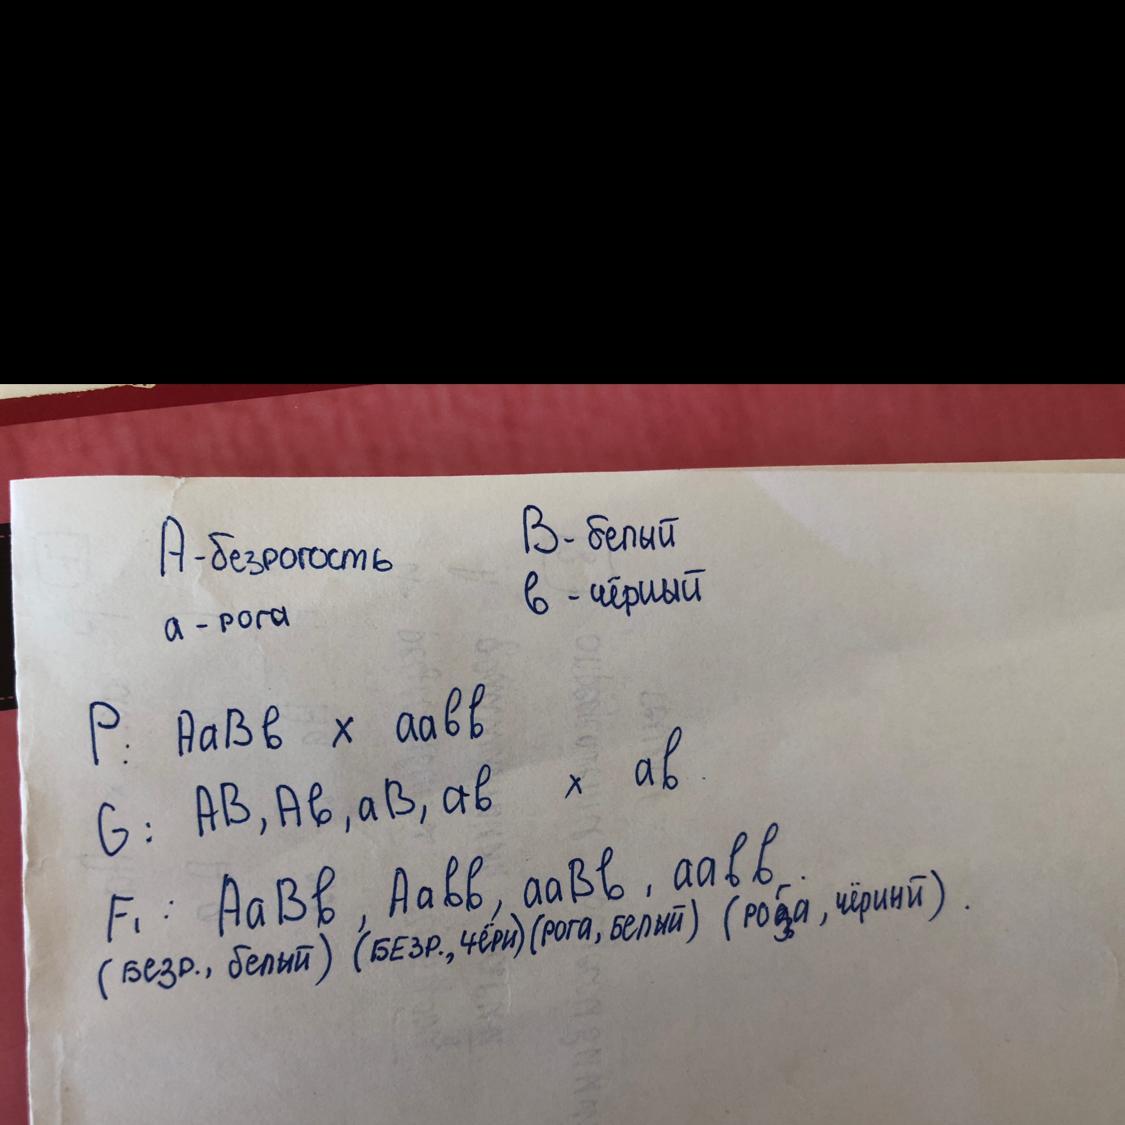 A - безрогость
B - белый
a - рога
в - чёрный
P: AaBв x aaвв
G: AB, Aв, aB, aв x aв.
F₁: AaBв, Aaвв, aaBв, aaвв.
(БЕЗР., белый) (БЕЗР., чёрн) (рога, белый) (рога, чёрный).